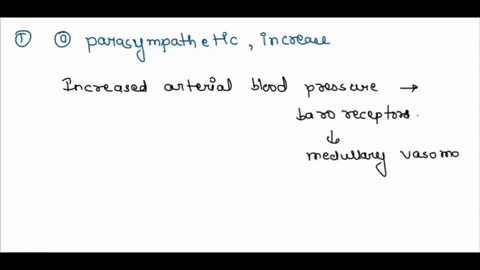 ① ⓐ parasympathetic, increase
Increased arterial blood pressure →
baroreceptors.
↓
medullary vasomo